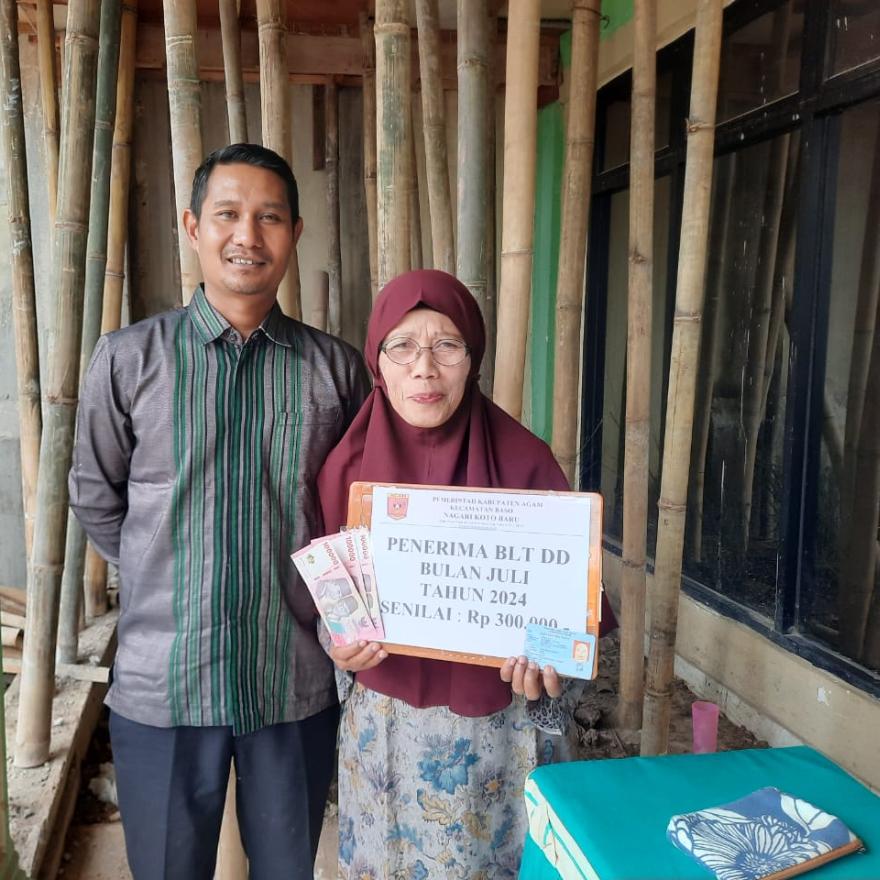 PEMERINTAH KABUPATEN AGAM
KECAMATAN BASO
NAGARI KOTO BARU
PENERIMA BLT DD
BULAN JULI
TAHUN 2024
SENILAI : Rp 300.000,-
100000
100000
100000